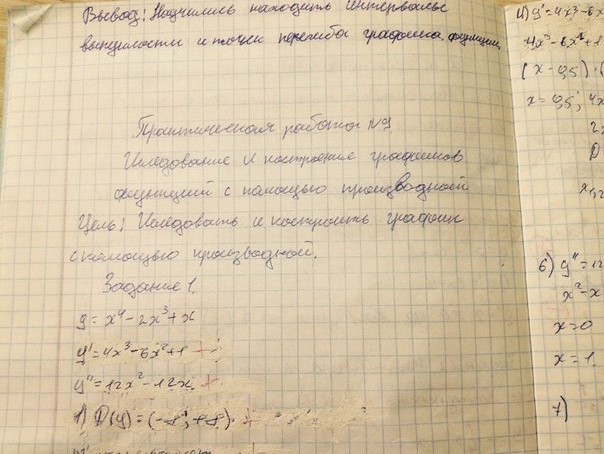 Вывод: Научились находить интервалы
выпуклости и точки перегиба графика функции
Практическая работа №9
Иследование и построение графиков
функций с помощью производной
Цель: Иследовать и построить график
с помощью производной.
Задание 1.
y = x⁴ - 2x³ + x
y' = 4x³ - 6x² + 1 +
y'' = 12x² - 12x +
1) D(y) = (-∞; +∞) +
4) y' = 4x³ - 6x
4x³ - 6x² + 1
(x - 0,5)
x = 0,5; 4x
D
x₁,₂
6) y'' = 12
x² - x
x = 0
x = 1.
7)